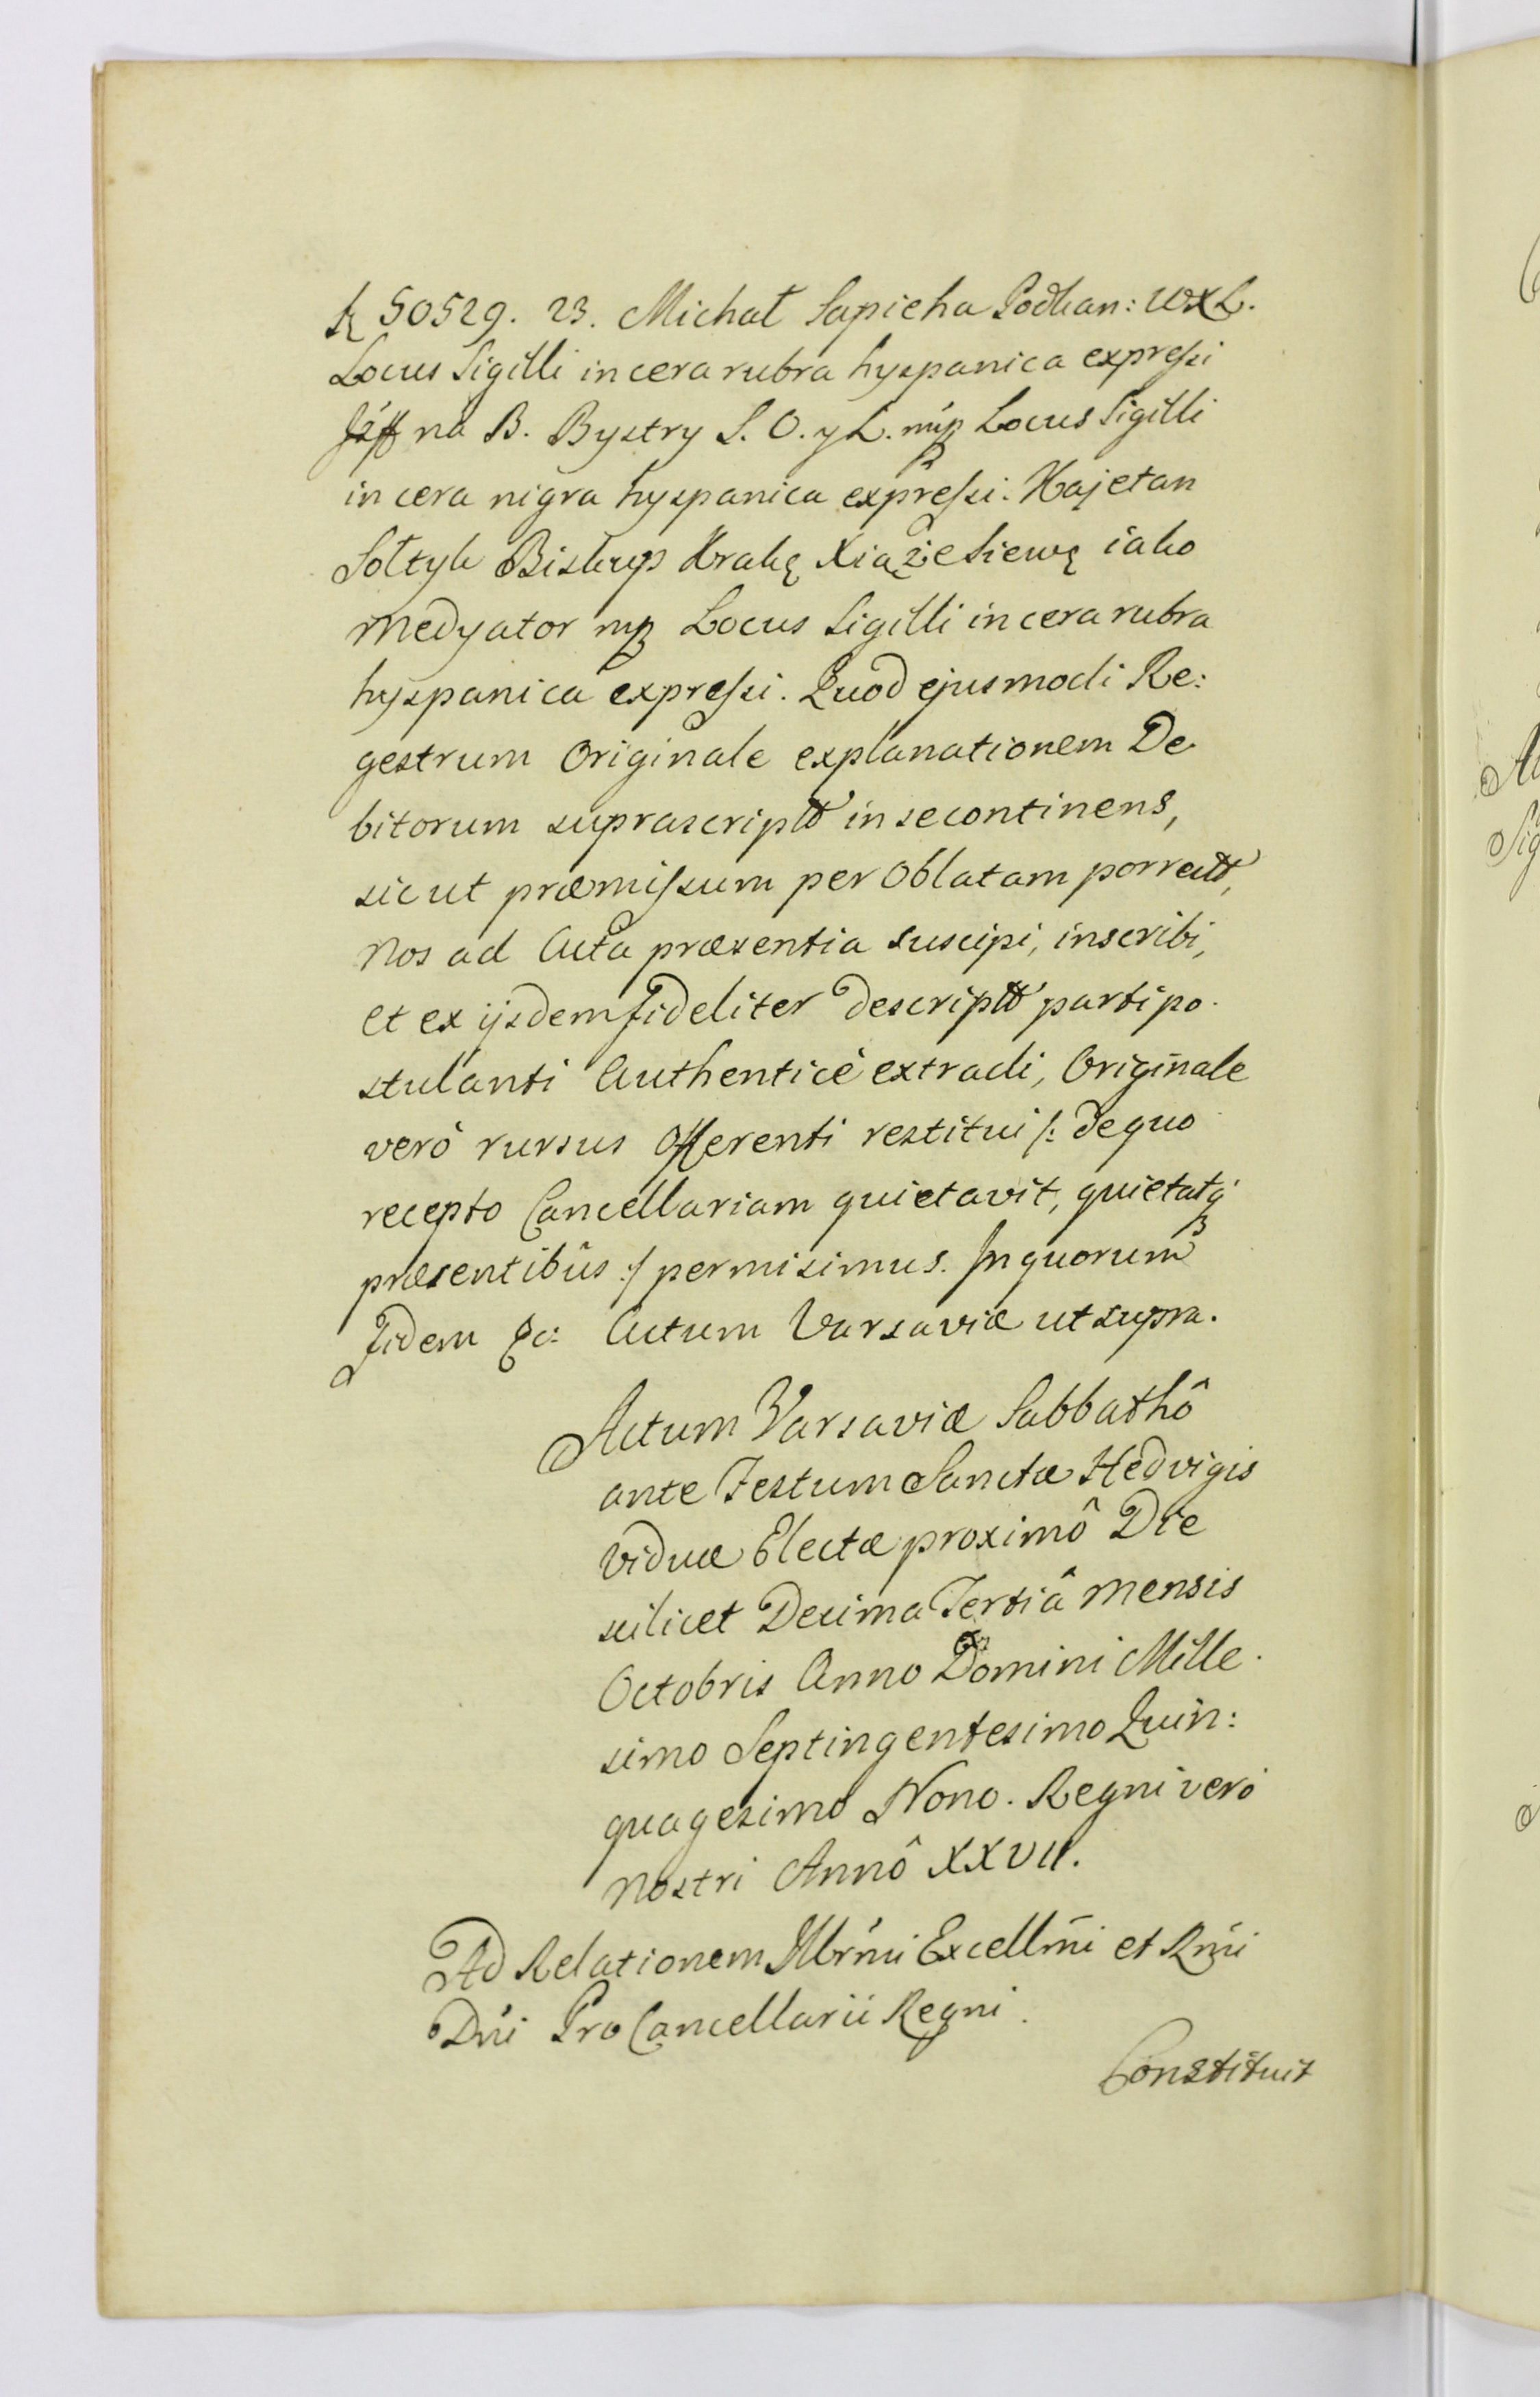 50529. 23. Michał Sapieha Podkan: WXL.
Locus Sigilli in cera rubra hyspanica expreſsi
na B. Bystry S. O. y L. mp Locus Sigilli
in cera nigra hyspanica expreſsi. Kajetan
Sołtyk Biskup Krakę Xiąże Siewę iako
Medyator mp Locus Sigilli in cera rubra
hyspanica expreſsi. Quod ejusmodi Re:
gestrum Originale explanationem De
bitorum suprascriptt in se continens,
sicut præmiſsum per Oblatam porrectt,
Nos ad Acta præsentia suscipi, inscribi,
et ex ijsdem fideliter descriptt parti po
stulanti Authenticè extradi, Originale
verò rursus Offerenti restitui /: de quo
recepto Cancellariam quietavit, quietatq
præsentibûs :/ permisimus. In quorum
Fidem &c: Actum Varsaviæ ut supra.
Actum Varsaviæ Sabbathô
ante Festum Sanctæ Hedvigis
Viduæ Electæ proximô Die
scilicet Decima Tertiâ Mensis
Octobris Anno Domini Mille
simo Septingentesimo Quin:
quagesimo Nono. Regni verò
Nostri Annô XXVII.
Ad Relationem Illrmi Excellmi et Rmi
Dni Pro Cancellarii Regni.
Constituit